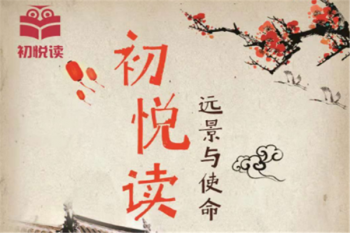 初悦读
初悦读
远景与使命